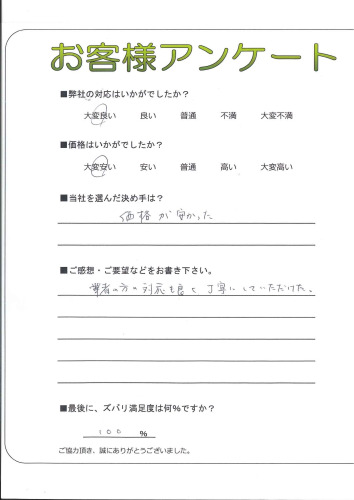 お客様アンケート
■弊社の対応はいかがでしたか?
大変良い 良い 普通 不満 大変不満
■価格はいかがでしたか?
大変安い 安い 普通 高い 大変高い
■当社を選んだ決め手は?
価格が安かった
■ご感想・ご要望などをお書き下さい。
業者の方の対応も良く丁寧にしていただけた。
■最後に、ズバリ満足度は何%ですか?
100 %
ご協力頂き、誠にありがとうございました。